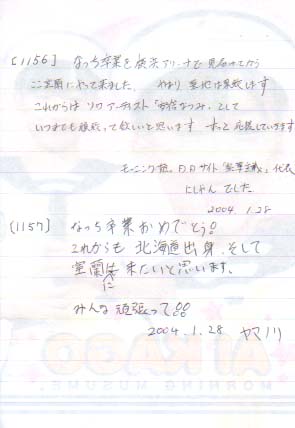 [1156] なっち卒業を横浜アリーナで見届けてから
ここ室蘭にやって来ました。やはり聖地は
これからは ソロアーティスト「安倍なつみ」として
いつまでも頑張って欲しいと思います ずっと応援していきます
モーニング娘。 サイト 代表
にしやん でした
2004 1.28
[1157] なっち卒業おめでとう!
これからも 北海道出身、そして
室蘭に来たいと思います。
みんな 頑張って!!
2004.1.28 ヤマノリ
AI KAGO
MORNING MUSUME.